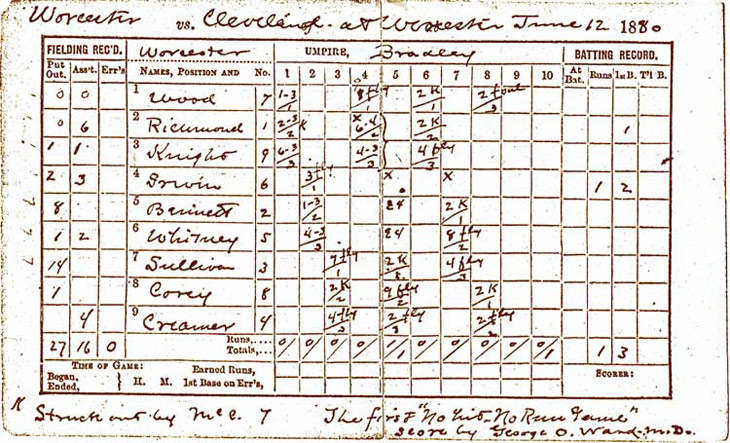 Worcester vs. Cleveland - at Worcester June 12 1880
FIELDING REC'D. Worcester UMPIRE, Bradley BATTING RECORD.
Put Out. Ass't. Err's NAMES, POSITION AND No. 1 2 3 4 5 6 7 8 9 10 At Bat. Runs 1st B. T'l B.
0 0 1 Wood 7 1-3/1 8 fly/1 2K/1 2 foul/3
0 6 2 Richmond 1 2-3/2 K x 6-4/2 2K/2 1
1 1 3 Knight 9 6-3/3 4-3/3 4 fly/3
2 3 4 Irwin 6 3 fly/1 x x 1 2
8 5 Bennett 2 1-3/2 E4 2K/1
1 2 6 Whitney 5 4-3/3 E4 8 fly/2
14 7 Sullivan 3 7 fly/1 2K 4 fly/3
1 8 Corey 8 2K/2 9 fly/2 2K/1
4 9 Creamer 4 4 fly/3 2 fly/3 2 fly/2
27 16 0 Runs,.... Totals,... 0/ 0/ 0/ 0/ 1/1 0/ 0/ 0/ 0/ 0/1 1 3
TIME OF GAME: Earned Runs, SCORER:
Began, Ended, H. M. 1st Base on Err's,
K Struck out by McC. 7 The first "No Hit-No Run Game"
Score by George O. Ward-M.D.